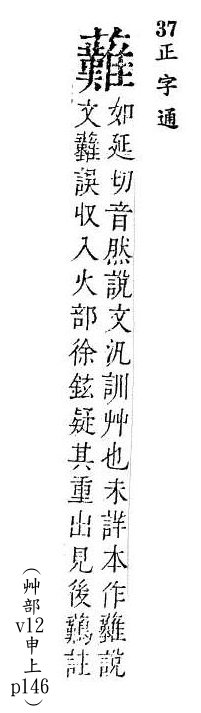 37正字通
䕼
如延切音然說文汎訓艸也未詳本作說
文誤収入火部徐鉉疑其重出見後註
（艸部
v12
申上
p146）